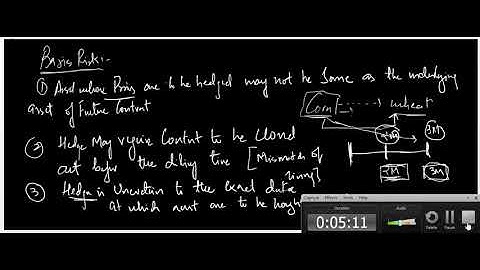 Basis Risk:-
① Asset whose Prices are to be hedged may not be same as the underlying
asset of Future Contract
Corn
wheat
② Hedge May require Contract to be Closed
out before the time [Mismatch of
timing]
3M
2M
3M
③ Hedger is Uncertain to the exact date
At which asset are to be
Capture Effects Tools Help
Duration
Audio
0:05:11
Delete
Pause
Stop